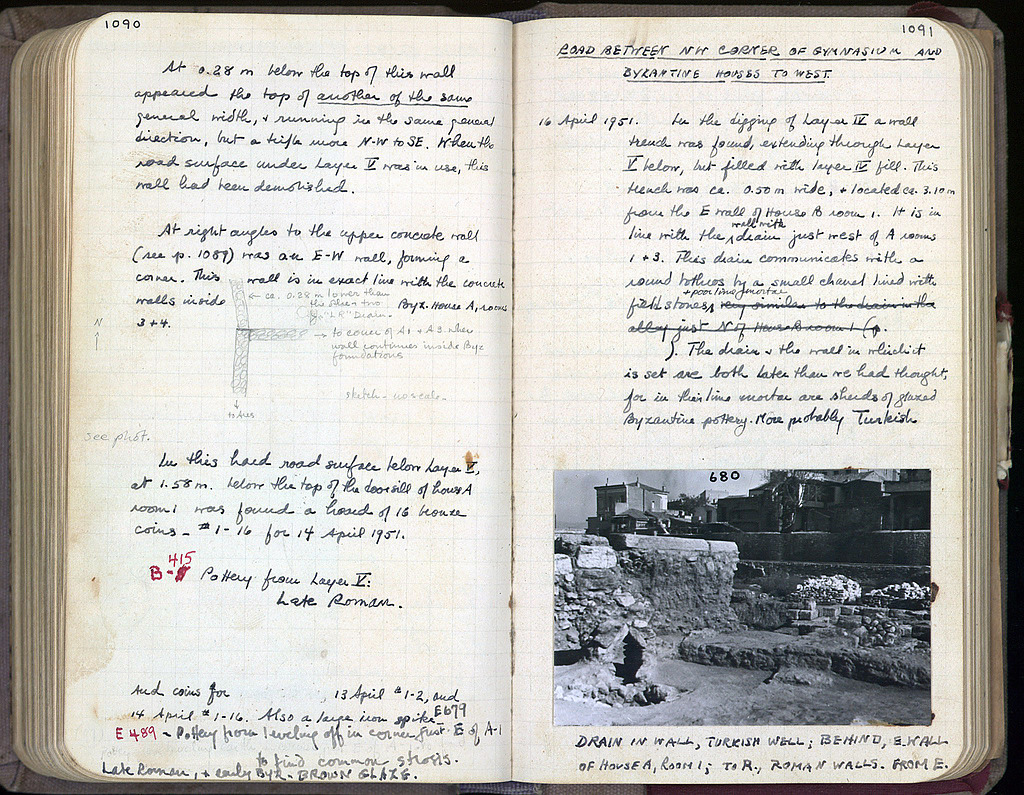 1090
At 0.28 m below the top of this wall
appeared the top of another of the same
general width, + running in the same general
direction, but a trifle more N-W to SE. When the
road surface under Layer V was in use, this
wall had been demolished.
At right angles to the upper concrete wall
(see p. 1089) was an E-W wall, forming a
corner. This wall is in exact line with the concrete
walls inside Byz. House A, rooms
3 + 4.
N
← ca. 0.28 m lower than
"LR" Drain.
→ to corner of A1 + A3 where
wall continues inside Byz
foundations
sketch - no scale.
see phot.
In this hard road surface below Layer V,
at 1.58 m. below the top of the doorsill of house A
room 1 was found a hoard of 16 bronze
coins - #1-16 for 14 April 1951.
415
B- Pottery from Layer V:
Late Roman.
And coins for 13 April #1-2, and
14 April #1-16. Also a large iron spike
E679
E 489 - Pottery from leveling off in corner just E of A-1
to find common strosis.
Late Roman, + early BYZ. BROWN GLAZE.
1091
ROAD BETWEEN NW CORNER OF GYMNASIUM AND
BYZANTINE HOUSES TO WEST.
16 April 1951. In the digging of Layer IV a wall
trench was found, extending through Layer
V below, but filled with layer IV fill. This
trench was ca. 0.50 m wide, + located ca. 3.10 m
from the E wall of House B room 1. It is in
wall with
line with the drain just west of A rooms
1 + 3. This drain communicates with a
round bothros by a small channel lined with
+ poor lime mortar
field stones, very similar to the drain in the
alley just N of House B room 1 (p.
). The drain + the wall in which it
is set are both later than we had thought,
for in their lime mortar are sherds of glazed
Byzantine pottery. More probably Turkish
680
DRAIN IN WALL, TURKISH WELL; BEHIND, E. WALL
OF HOUSE A, ROOM 1; TO R., ROMAN WALLS. FROM E.